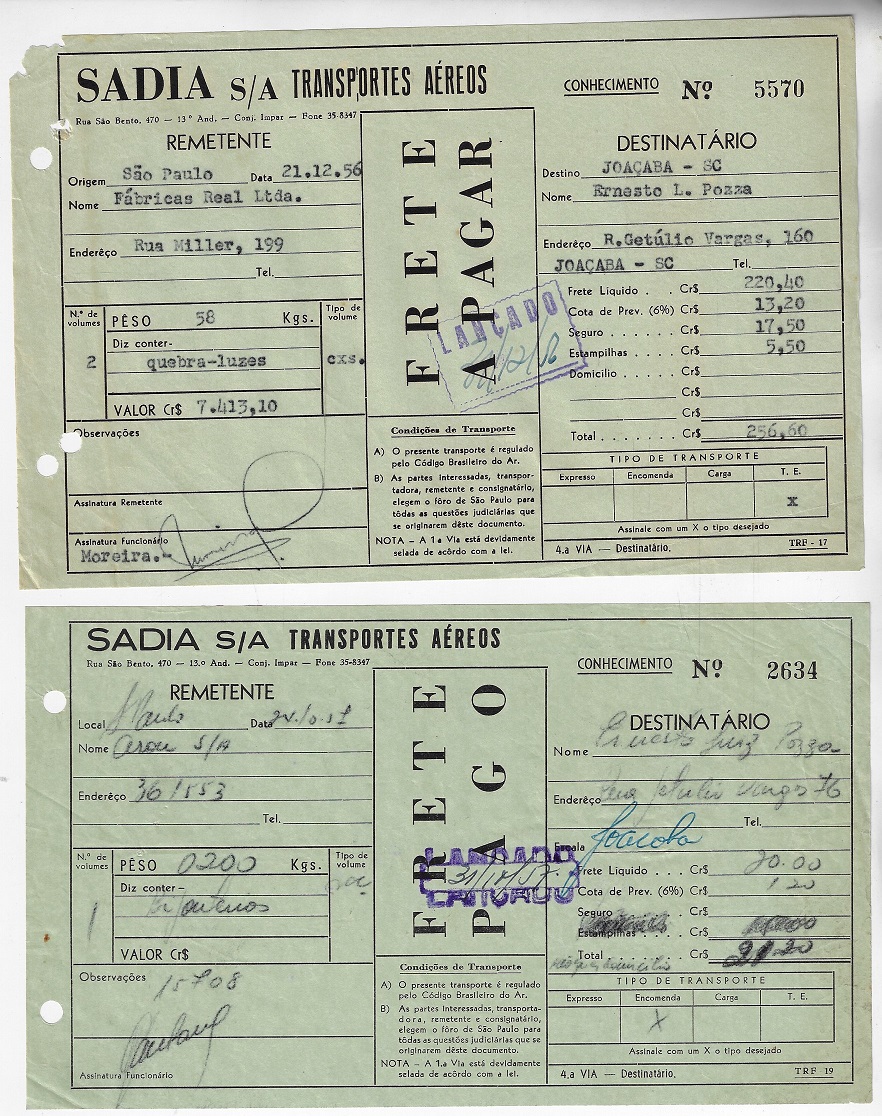 SADIA S/A TRANSPORTES AÉREOS
CONHECIMENTO Nº 5570
Rua São Bento, 470 — 13º And. — Conj. Impar — Fone 35-8347
REMETENTE
Origem São Paulo Data 21.12.56
Nome Fábricas Real Ltda.
Enderêço Rua Miller, 199
Tel.
N.º de volumes
2
PÊSO 58 Kgs.
Tipo de volume
cxs.
Diz conter-
quebra-luzes
VALOR Cr$ 7.413,10
Observações
Assinatura Remetente
Assinatura Funcionário
Moreira.-
FRETE
A PAGAR
LANÇADO
Condições de Transporte
A) O presente transporte é regulado
pelo Código Brasileiro do Ar.
B) As partes interessadas, transpor-
tadora, remetente e consignatário,
elegem o fôro de São Paulo para
tôdas as questões judiciárias que
se originarem dêste documento.
NOTA - A 1a Via está devidamente
selada de acôrdo com a lei.
DESTINATÁRIO
Destino JOAÇABA - SC
Nome Ernesto L. Pozza
Enderêço R.Getúlio Vargas, 160
JOAÇABA - SC Tel.
Frete Líquido . . Cr$ 220,40
Cota de Prev. (6%) Cr$ 13,20
Seguro . . . . . Cr$ 17,50
Estampilhas . . . . Cr$ 5,50
Domicilio . . . . Cr$
Cr$
Cr$
Total . . . . . . . Cr$ 256,60
TIPO DE TRANSPORTE
Expresso Encomenda Carga T. E.
x
Assinale com um X o tipo desejado
4.a VIA — Destinatário. TRF - 17
SADIA S/A TRANSPORTES AÉREOS
CONHECIMENTO Nº 2634
Rua São Bento, 470 — 13.o And. — Conj. Impar — Fone 35-8347
REMETENTE
Local S. Paulo Data
Nome S/A
Enderêço 36/553
Tel.
N.º de volumes
1
PÊSO 0200 Kgs.
Tipo de volume
Diz conter-
VALOR Cr$
Observações
15708
Assinatura Funcionário
FRETE
PAGO
LANÇADO
31/10/57
LANÇADO
Condições de Transporte
A) O presente transporte é regulado
pelo Código Brasileiro do Ar.
B) As partes interessadas, transporta-
dora, remetente e consignatário,
elegem o fôro de São Paulo para
tôdas as questões judiciárias que se
originarem dêste documento.
NOTA — A 1.a Via está devidamente
selada de acôrdo com a lei.
DESTINATÁRIO
Nome Ernesto Luiz Pozza
Enderêço Rua Getulio Vargas 76
Tel.
Escala Joacaba
Frete Líquido . . Cr$ 20.00
Cota de Prev. (6%) Cr$ 1 20
Seguro . Cr$
Estampilhas . . . Cr$
Total . . . . Cr$ 21.20
TIPO DE TRANSPORTE
Expresso Encomenda Carga T. E.
X
Assinale com um X o tipo desejado
4.a VIA — Destinatário. TRF 19